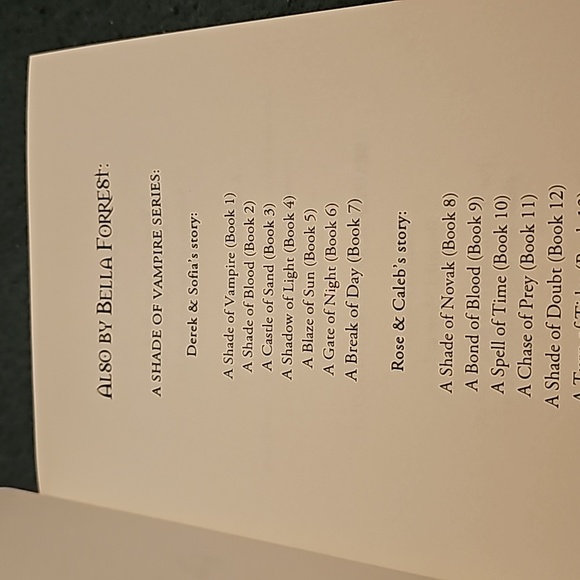 ALSO BY BELLA FORREST:
A SHADE OF VAMPIRE SERIES:
Derek & Sofia's story:
A Shade of Vampire (Book 1)
A Shade of Blood (Book 2)
A Castle of Sand (Book 3)
A Shadow of Light (Book 4)
A Blaze of Sun (Book 5)
A Gate of Night (Book 6)
A Break of Day (Book 7)
Rose & Caleb's story:
A Shade of Novak (Book 8)
A Bond of Blood (Book 9)
A Spell of Time (Book 10)
A Chase of Prey (Book 11)
A Shade of Doubt (Book 12)